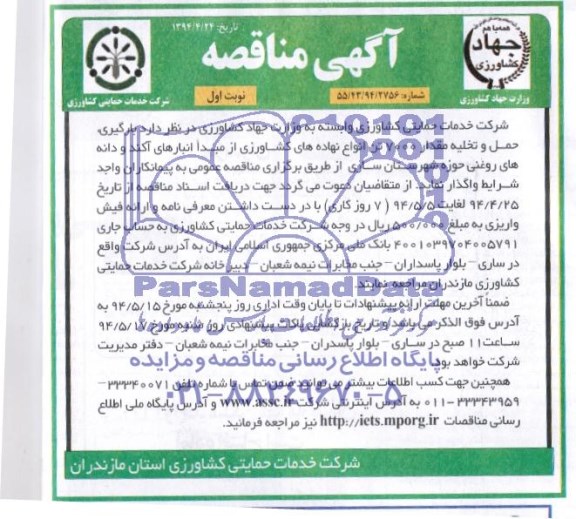 تاریخ: ۱۳۹۴/۴/۲۴
همه با هم
جهاد
کشاورزی
آگهی مناقصه
وزارت جهاد کشاورزی
شماره: ۵۵/۴۳/۹۴/۲۷۵۶
نوبت اول
شرکت خدمات حمایتی کشاورزی
شرکت خدمات حمایتی کشاورزی وابسته به وزارت جهاد کشاورزی در نظر دارد بارگیری،
حمل و تخلیه مقدار ۷۰۰۰ تن انواع نهاده های کشاورزی از مبدأ انبارهای آکند و دانه
های روغنی حوزه شهرستان ساری از طریق برگزاری مناقصه عمومی به پیمانکاران واجد
شرایط واگذار نماید. از متقاضیان دعوت می گردد جهت دریافت اسناد مناقصه از تاریخ
۹۴/۴/۲۵ لغایت ۹۴/۵/۵ (۷ روز کاری) با در دست داشتن معرفی نامه و ارائه فیش
واریزی به مبلغ ۵۰۰/۰۰۰ ریال در وجه شرکت خدمات حمایتی کشاورزی به حساب جاری
۴۰۰۱۰۳۹۰۴۰۰۵۷۹۱ بانک ملی مرکزی جمهوری اسلامی ایران به آدرس شرکت واقع
در ساری – بلوار پاسداران – جنب مخابرات نیمه شعبان – دبیرخانه شرکت خدمات حمایتی
کشاورزی مازندران مراجعه نمایند.
ضمناً آخرین مهلت ارائه پیشنهادات تا پایان وقت اداری روز پنجشنبه مورخ ۹۴/۵/۱۵ به
آدرس فوق الذکر می باشد و تاریخ بازگشایی پاکات پیشنهادی روز شنبه مورخ ۹۴/۵/۱۷
ساعت ۱۱ صبح در ساری – بلوار پاسدران – جنب مخابرات نیمه شعبان – دفتر مدیریت
شرکت خواهد بود.
همچنین جهت کسب اطلاعات بیشتر می توانید ضمن تماس با شماره تلفن ۳۳۳۴۰۰۷۱ –
۳۳۳۴۳۹۵۹-۰۱۱ به آدرس اینترنتی شرکت www.assc.ir و آدرس پایگاه ملی اطلاع
رسانی مناقصات http://iets.mporg.ir نیز مراجعه فرمائید.
شرکت خدمات حمایتی کشاورزی استان مازندران
ParsNamadData
پایگاه اطلاع رسانی مناقصه و مزایده
۰۲۱-۸۸۳۴۹۶۷۰-۵